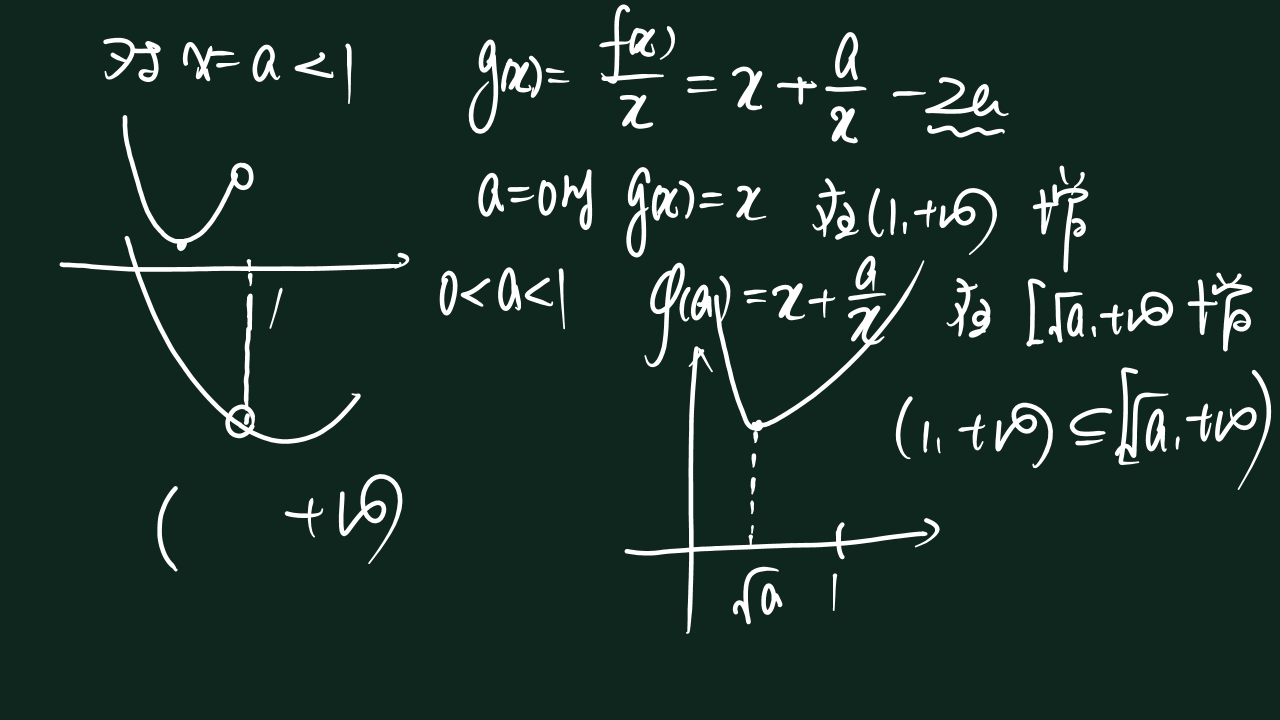 对 x=a<1
g(x)= f(x)/x = x + a/x - 2a
a=0时 g(x)=x 在(1,+∞)单调
0<a<1 g(a)=x+ a/x 在 [√a,+∞ 单调
(1,+∞)⊆[√a,+∞)
1
( +∞)
√a 1